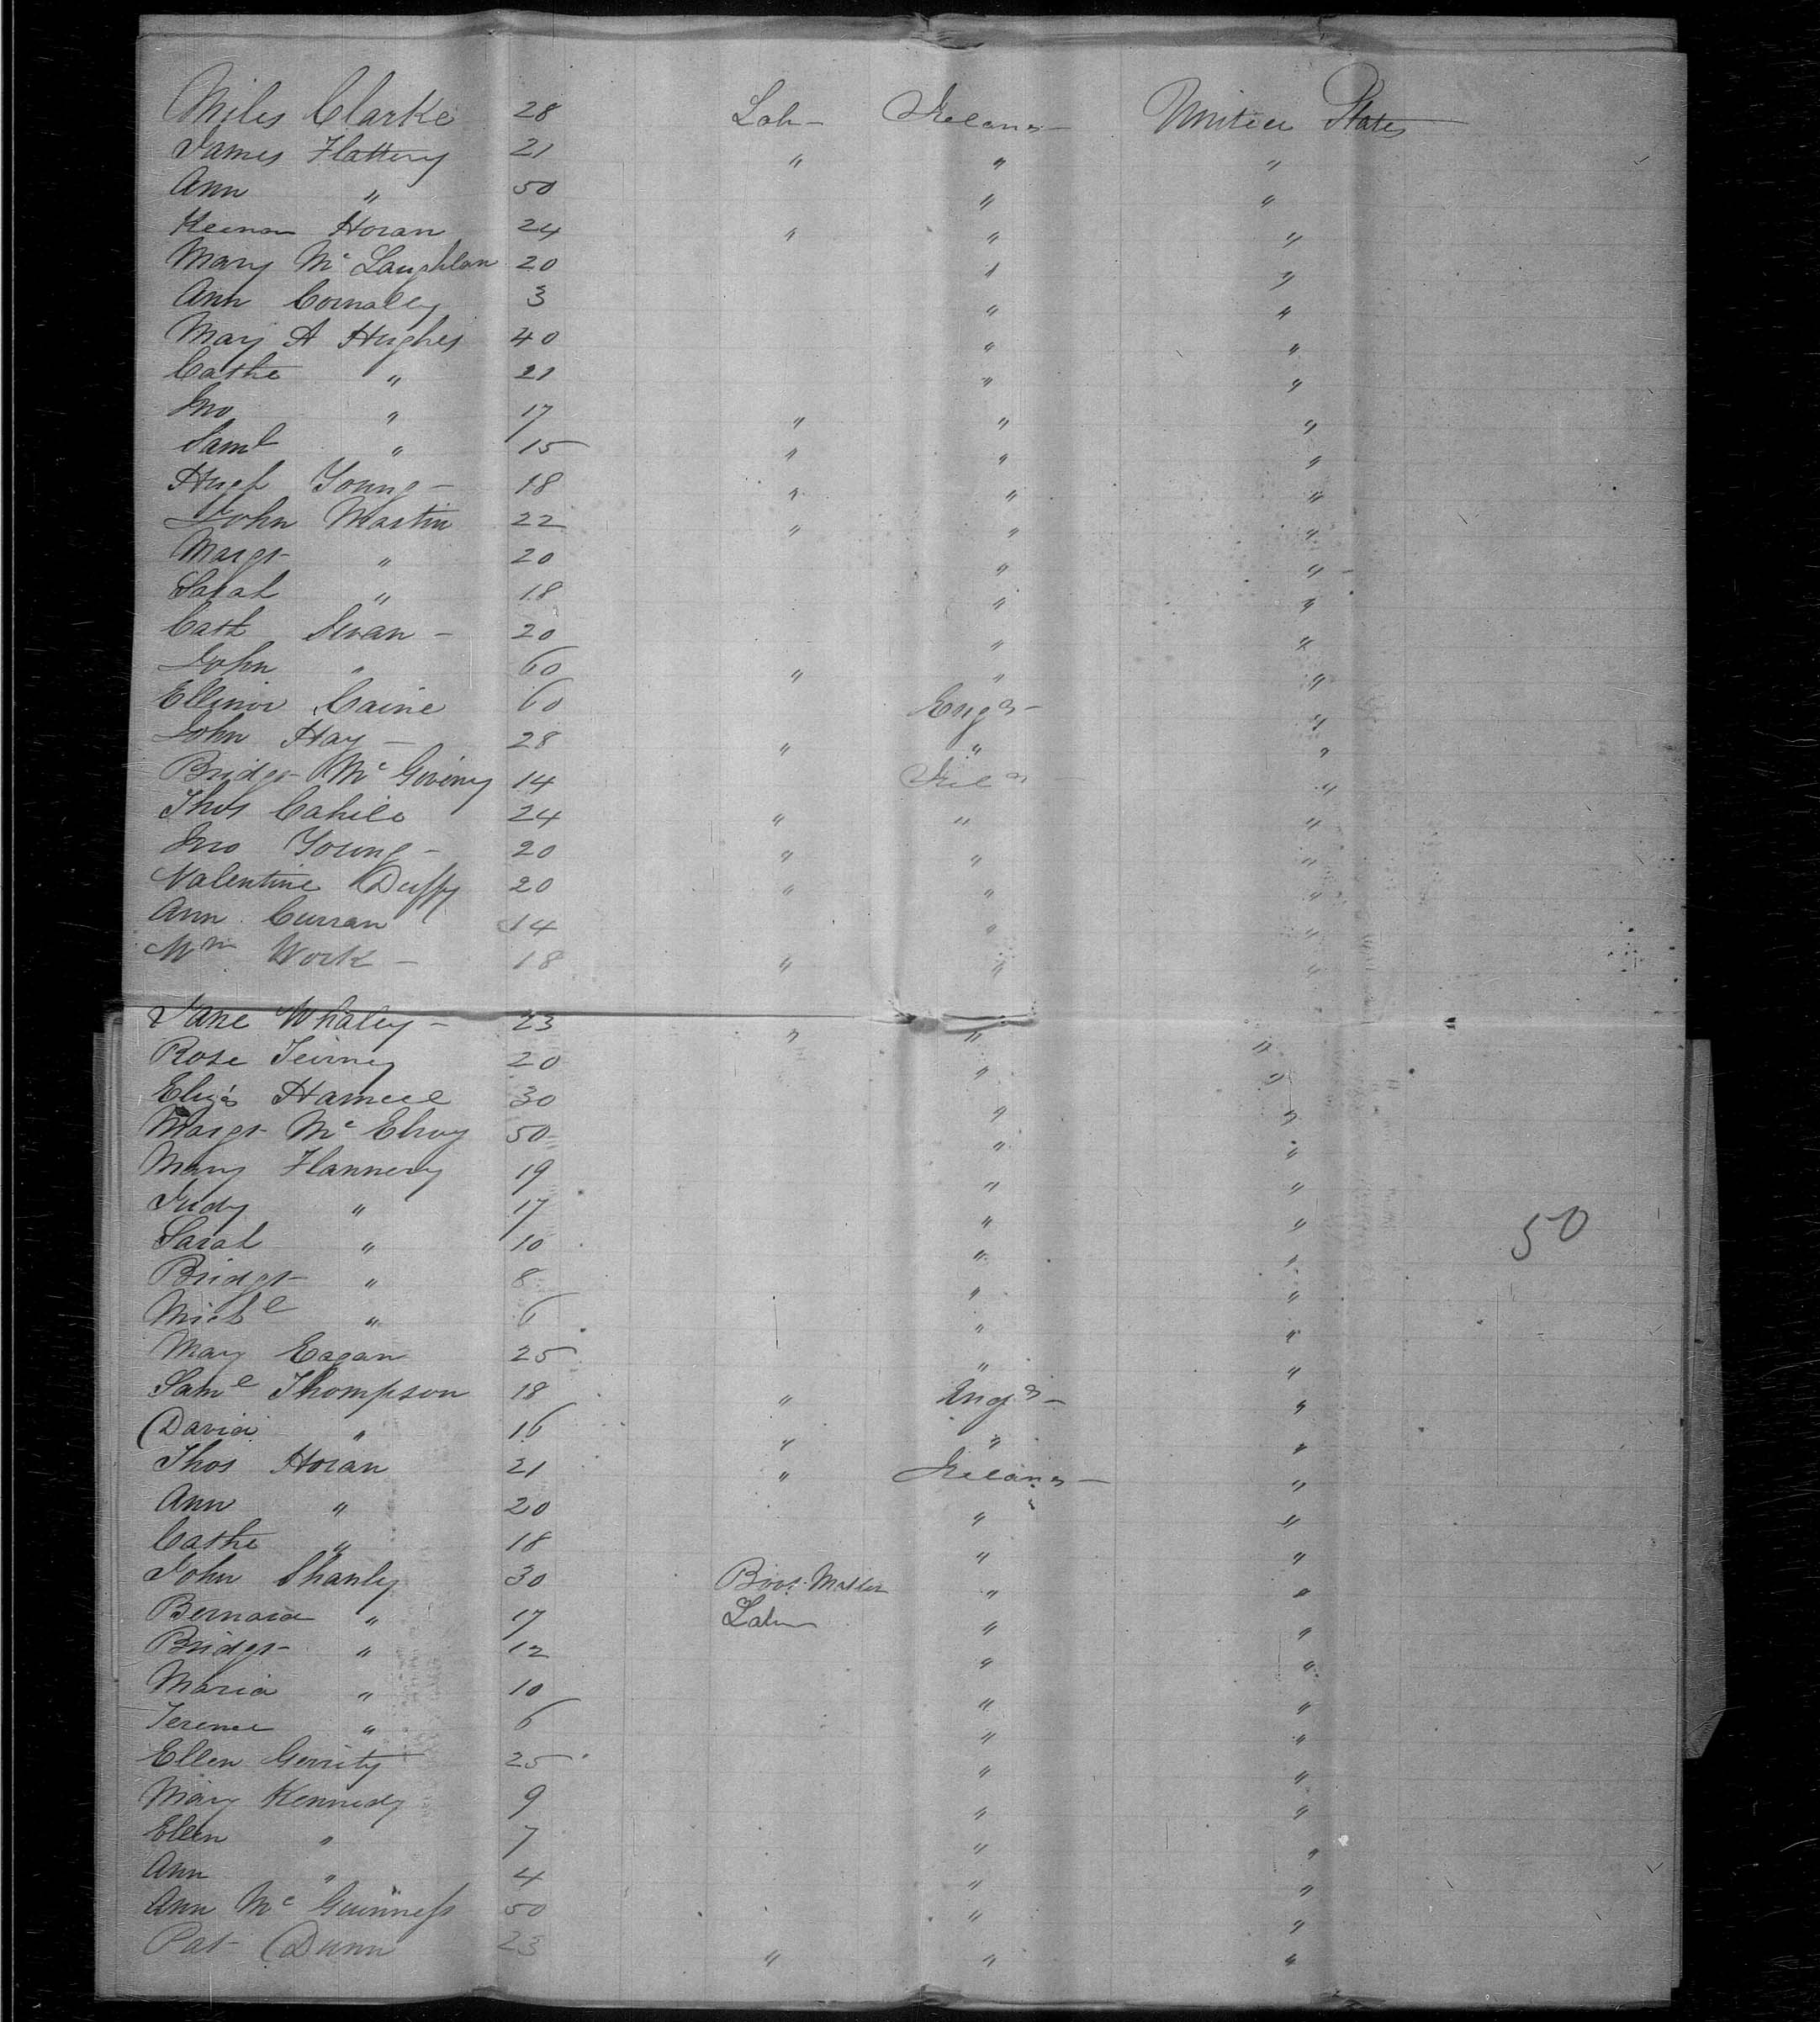 Miles Clarke 28 Lab Ireland United States
James Flattery 21 " " "
Ann " 50 " "
Horan 24 " " "
Mary McLaughlan 20 " "
Ann 3 " "
Mary A Hughes 40 " "
Cathe " 21 " "
Jno " 17 " " "
Saml " 15 " " "
Hugh Young 18 " " "
John Martin 22 " " "
Margt " 20 " "
Sarah " 18 " "
Cath 20 " "
John " 60 " " "
Ellinor Caine 60 Engd "
John Hay 28 " " "
Bridgt Mc 14 Ireld "
Thos Cahill 24 " " "
Jno Young 20 " " "
Valentine Duffy 20 " " "
Ann Curran 14 " "
Wm Work 18 " " "
Jane Whaley 23 " " "
Rose 20 " "
Eliza 30 " "
Margt McElroy 50 " "
Mary Flannery 19 " "
Judy " 17 " "
Sarah " 10 " " 50
Bridgt " 8 " "
Michl " 6 " "
Mary Eagan 25 " "
Saml Thompson 18 " Engd "
David " 16 " " "
Thos Horan 21 " Ireland "
Ann " 20 " "
Cathe " 18 " "
John Shanly 30 Boot Maker " "
Bernard " 17 Lab " "
Bridgt " 12 " "
Maria " 10 " "
Terence " 6 " "
Ellen Gerrity 25 " "
Mary Kennedy 9 " "
Ellen " 7 " "
Ann " 4 " "
Ann McGuinness 50 " "
Pat Dunn 23 " " "